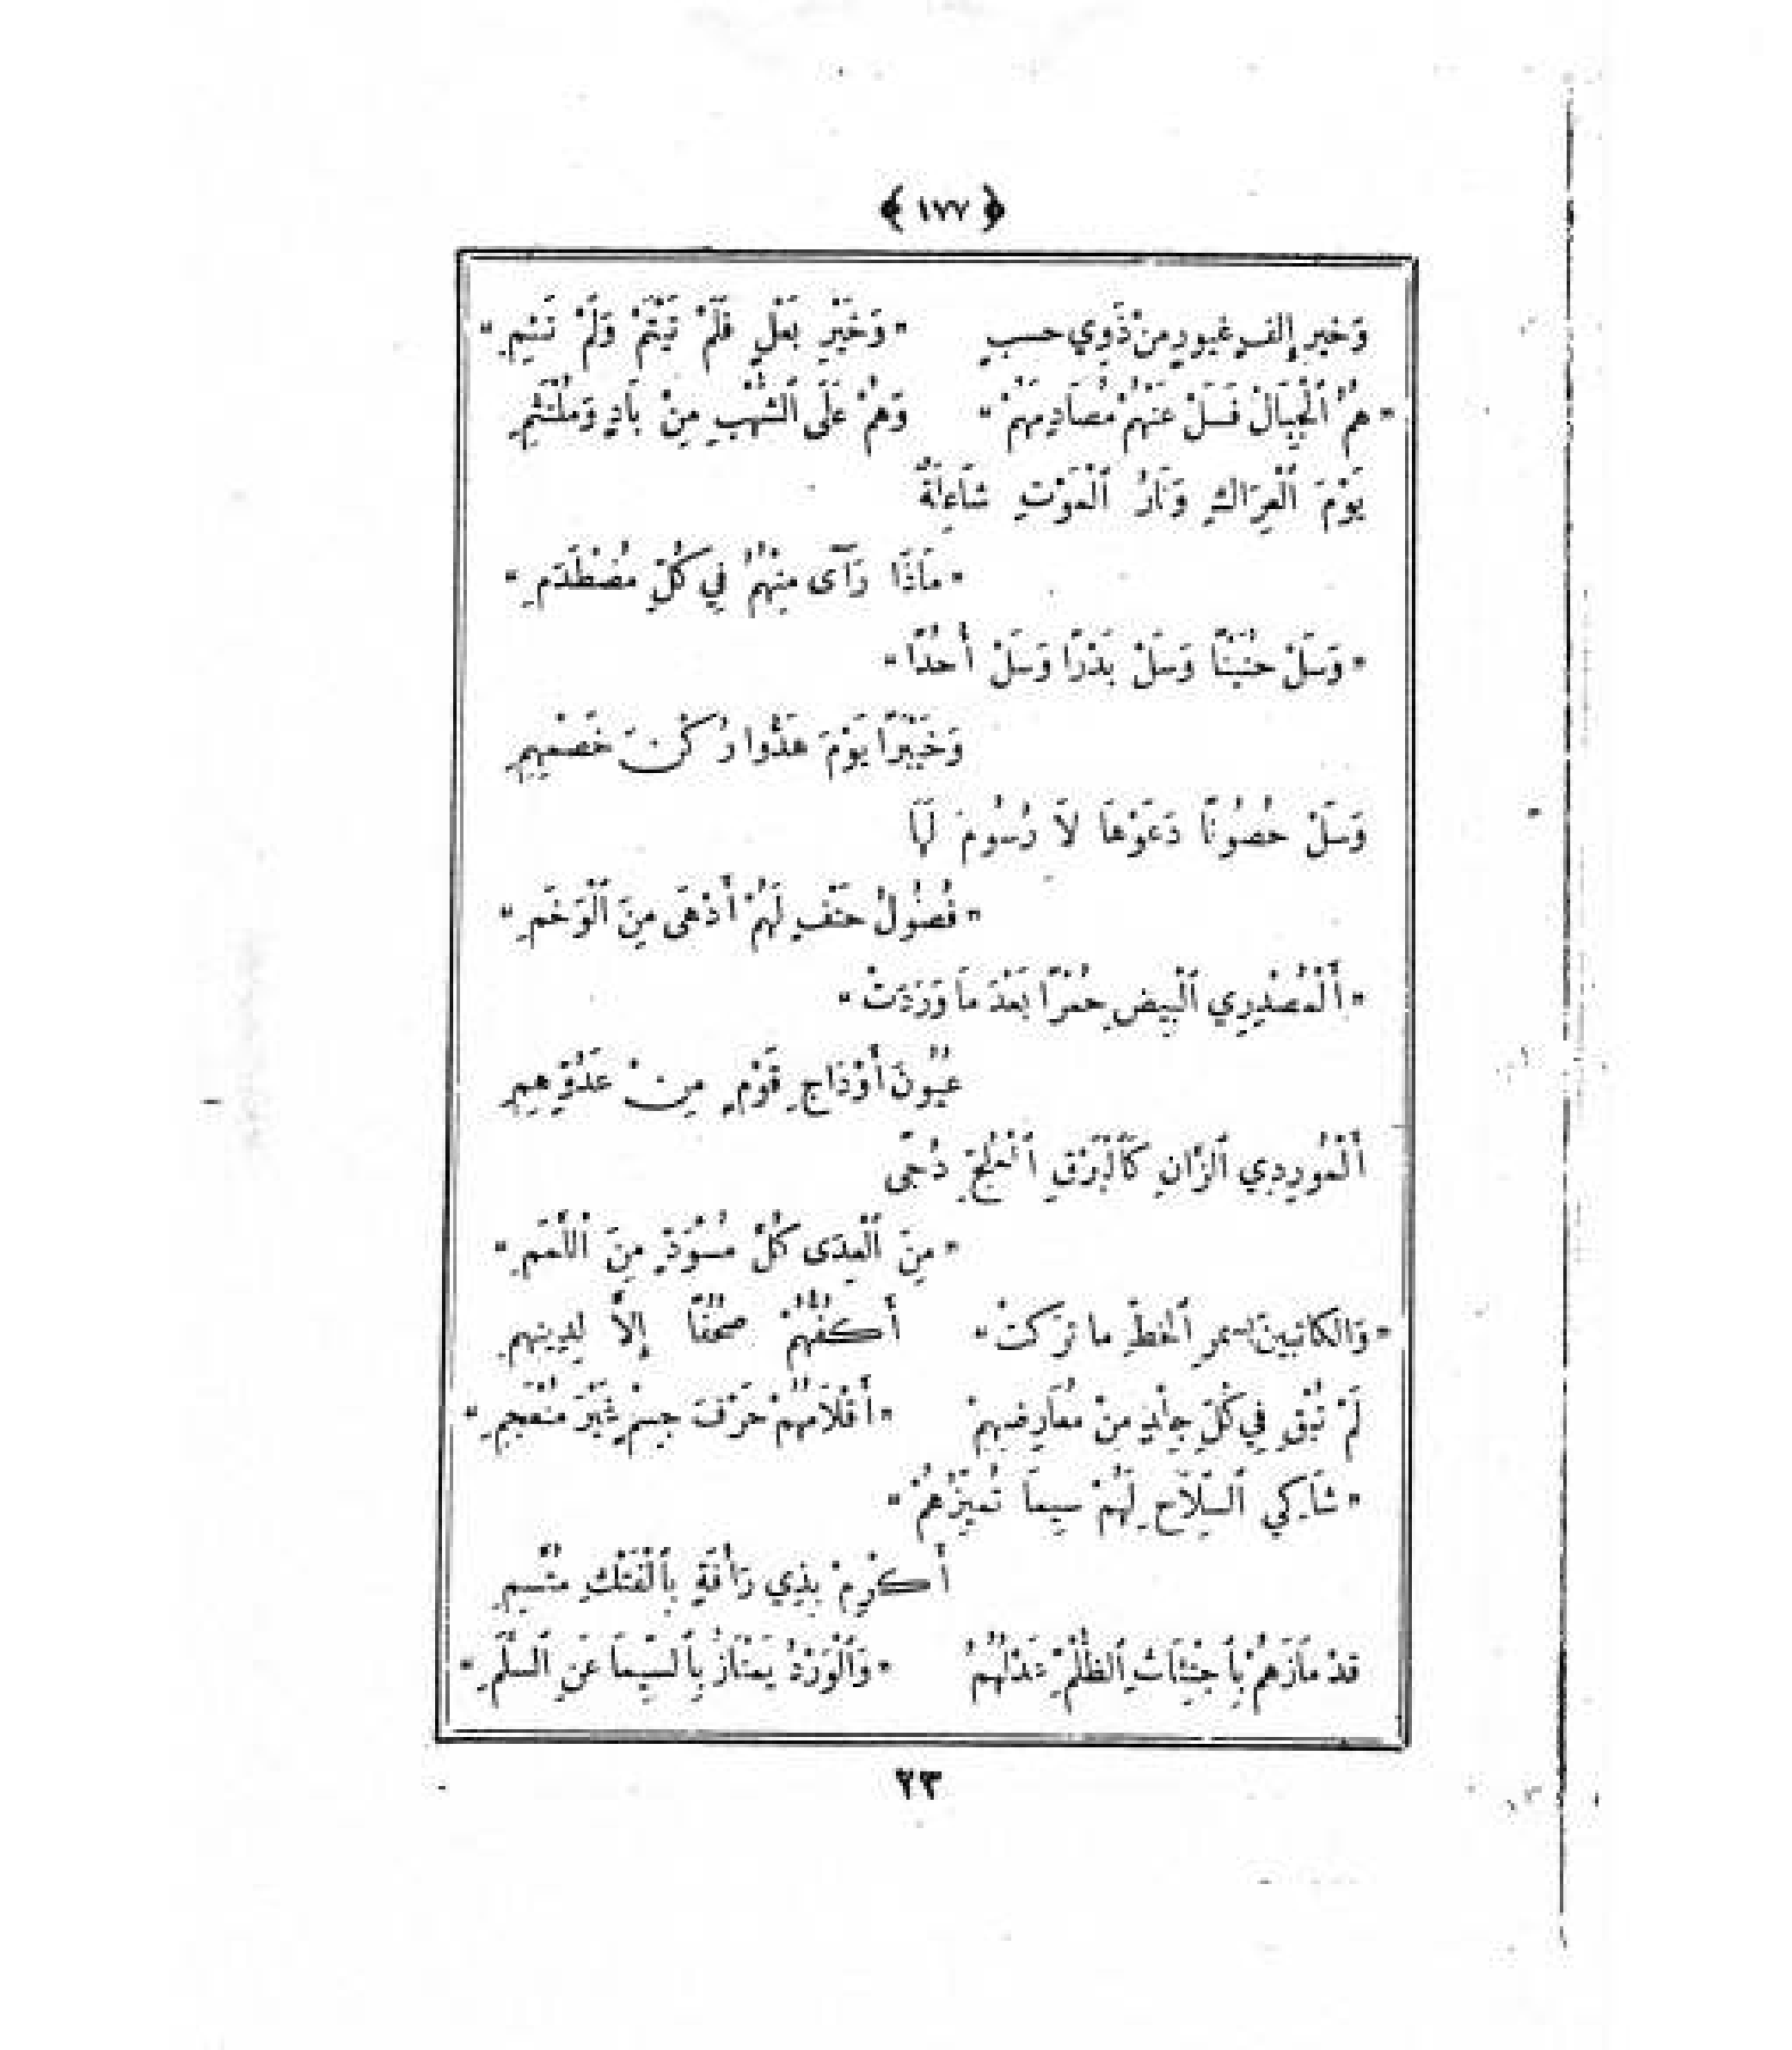 ﴿ ١٧٧ ﴾
وَخَيرِ إِلفٍ غيورٍ مِنْ ذَوِي حسبٍ " وَخَيْرِ بَعْلٍ فَلَمْ تَيْتَمْ وَلَمْ تَئِمِ "
" هُمُ ٱلْجِبَالُ فَسَلْ عَنْهُمْ مُصَادِمَهُمْ " وَهُمْ عَلَى ٱلشُّهْبِ مِنْ بَادٍ وَمُلْتَثِمِ
يَوْمَ ٱلْعِرَاكِ وَنَارُ ٱلْمَوْتِ شَاعِلَةٌ
" مَاذَا رَآى مِنْهُمُ فِي كُلِّ مُصْطَدَمِ "
" وَسَلْ حُنَيْنًا وَسَلْ بَدْرًا وَسَلْ أُحُدًا "
وَخَيْبَرًا يَوْمَ هَدُّوا رُكْنَ خَصْمِهِمِ
وَسَلْ حُصُونًا دَعَوْهَا لاَ رُسُومَ لَهَا
" فُصُولُ حَتْفٍ لَهُمْ أَدْهَى مِنَ ٱلْوَخَمِ "
" أَلْمُصْدِرِي ٱلْبِيضِ حُمْرًا بَعْدَ مَا وَرَدَتْ "
عُيُونَ أَوْدَاجِ قَوْمٍ مِنْ عَدُوِّهِمِ
أَلْمُورِدِي ٱلزَّانِ كَٱلْبَرْقِ ٱلْمُلِحِّ دُجًى
" مِنَ ٱلْعِدَى كُلَّ مُسْوَدٍّ مِنَ ٱللِّمَمِ "
" وَالكاتبينَ بسمرِ ٱلخطِّ ما تَرَكتْ " أَكُفُّهُمْ صُحُفًا إِلاَّ لِدِينِهِمِ
لَمْ تُبْقِ فِي كُلِّ جِلْدٍ مِنْ مُعَارِضِهِمْ " أَقْلَامُهُمْ حَرْفَ جِسْمٍ غَيْرَ مُنْعَجِمِ "
" شَاكِي ٱلسِّلَاحِ لَهُمْ سِيمَا تُمَيِّزُهُمْ "
أَكْرِمْ بِذِي رَأْفَةٍ بِٱلْفَتْكِ مُتَّسِمِ
قدْ مَازَهُمْ بِٱجْتِثَاثِ ٱلظُّلْمِ عَدْلُهُمُ " وَٱلْوَرْدُ يَمْتَازُ بِٱلسِّيمَا عَنِ ٱلسَّلَمِ "
٢٣